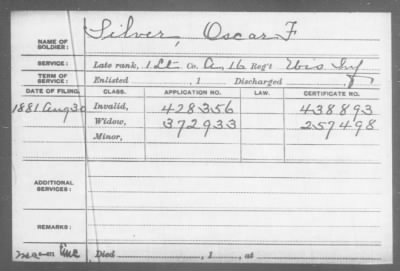 NAME OF SOLDIER: Silver, Oscar F
SERVICE: Late rank, 1 Lt Co. A, 16 Reg't Wis. Inf
TERM OF SERVICE: Enlisted , 1 Discharged , 1
DATE OF FILING. CLASS. APPLICATION NO. LAW. CERTIFICATE NO.
1881 Aug 30 Invalid, 428356 438893
Widow, 372933 257498
Minor,
ADDITIONAL SERVICES:
REMARKS:
Died , 1 , at